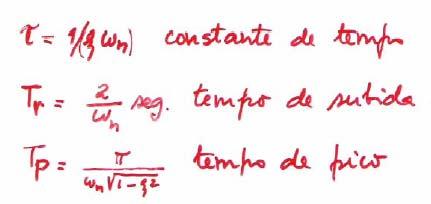 τ = 1/(ξ ωn) constante de tempo
Tr = 2/ωn seg. tempo de subida
Tp = π/(ωn√(1-ξ²)) tempo de pico